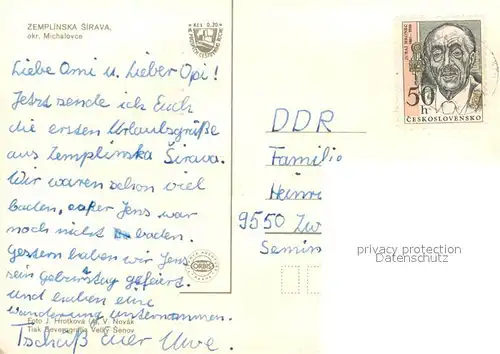 ZEMPLÍNSKA ŠÍRAVA,
okr. Michalovce
Kčs 0,30
Liebe Omi u. Lieber Opi!
Jetzt sende ich Euch
die ersten Urlaubsgrüße
aus Zemplinska Širava.
Wir waren schon viel
baden, außer Jens war
noch nicht baden.
Gestern haben wir Jens
sein Geburtstag gefeiert.
Und haben eine
Wanderung unternommen.
Tschüß Euer Uwe
Foto J. Hrotková (4), V. Novák
Tisk Severografia Velký Šenov
ORBIS
50 h
ČESKOSLOVENSKO
DDR
Familie
Heinri
9550 Zw
Semin
privacy protection
Datenschutz